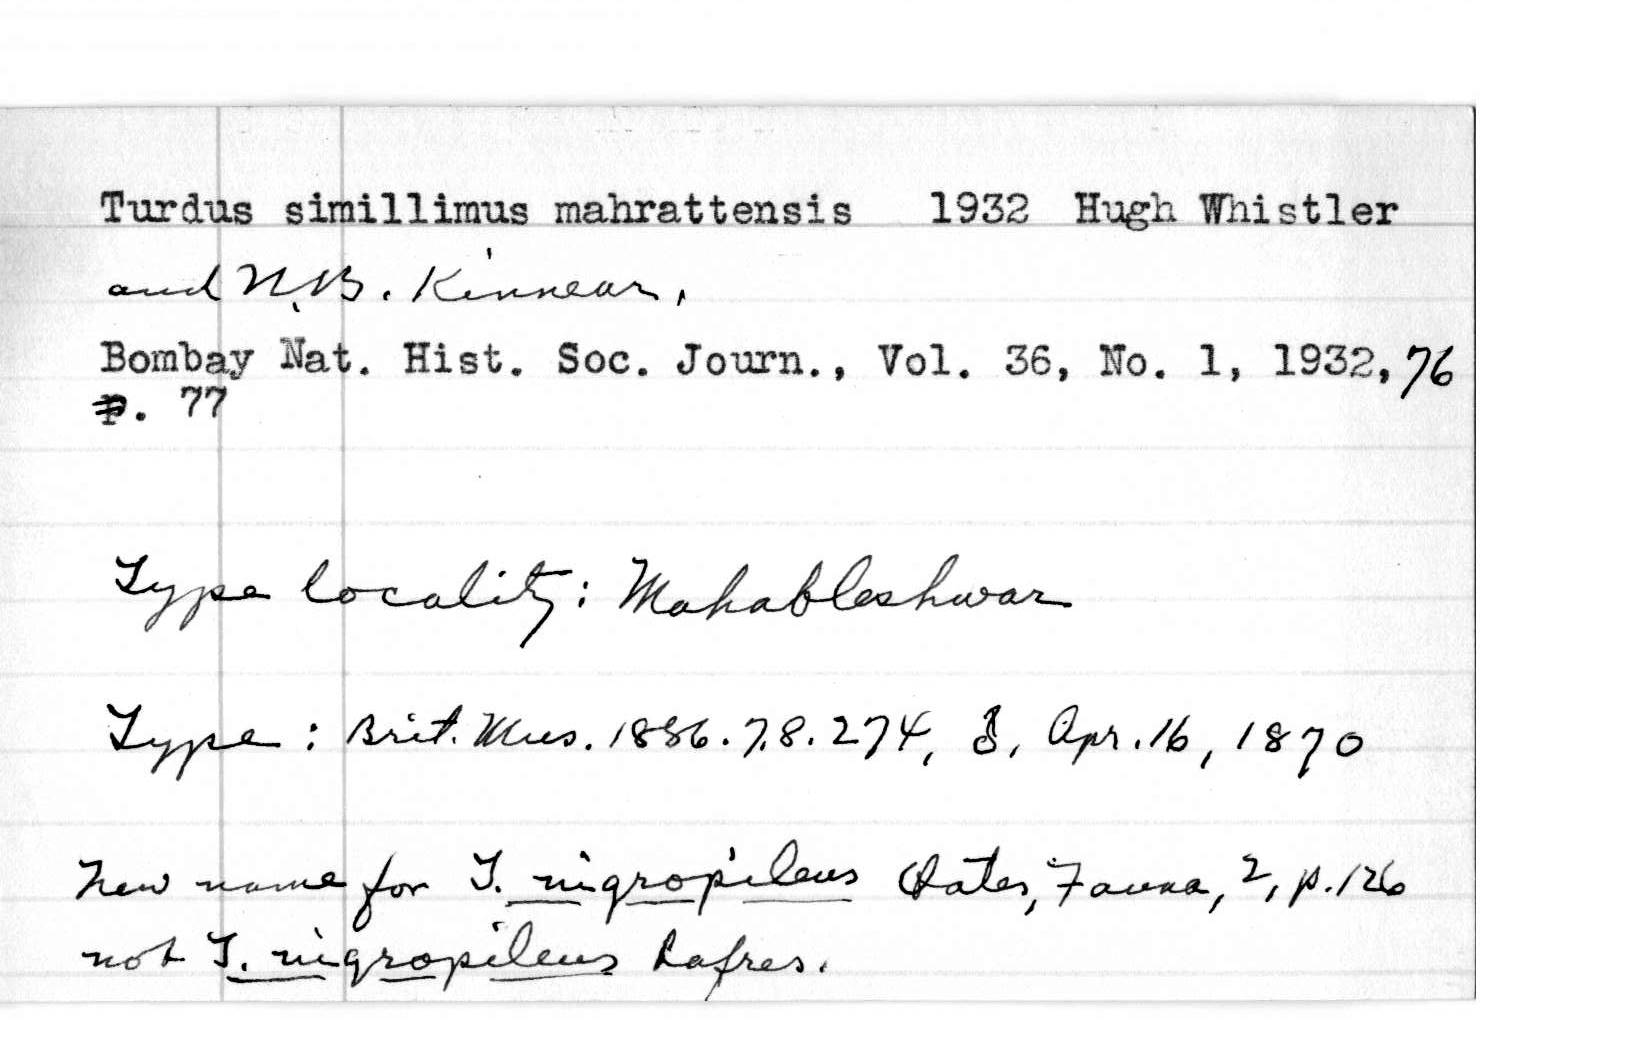 Turdus simillimus mahrattensis 1932 Hugh Whistler
and N.B. Kinnear,
Bombay Nat. Hist. Soc. Journ., Vol. 36, No. 1, 1932, 76
p. 77
Type locality: Mahableshwar
Type: Brit. Mus. 1886.7.8.274, ♂, Apr. 16, 1870
New name for T. nigropileus Oates, Fauna, 2, p. 126
not T. nigropileus Lafres.